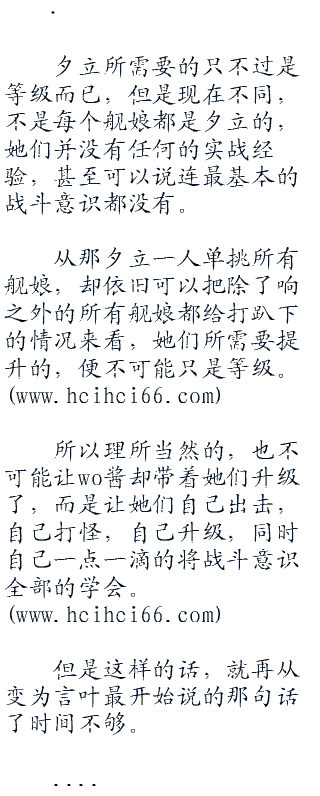 .
夕立所需要的只不过是
等级而已，但是现在不同，
不是每个舰娘都是夕立的，
她们并没有任何的实战经
验，甚至可以说连最基本的
战斗意识都没有。
从那夕立一人单挑所有
舰娘，却依旧可以把除了响
之外的所有舰娘都给打趴下
的情况来看，她们所需要提
升的，便不可能只是等级。
(www.hcihci66.com)
所以理所当然的，也不
可能让wo酱却带着她们升级
了，而是让她们自己出击，
自己打怪，自己升级，同时
自己一点一滴的将战斗意识
全部的学会。
(www.hcihci66.com)
但是这样的话，就再从
变为言叶最开始说的那句话
了时间不够。
....